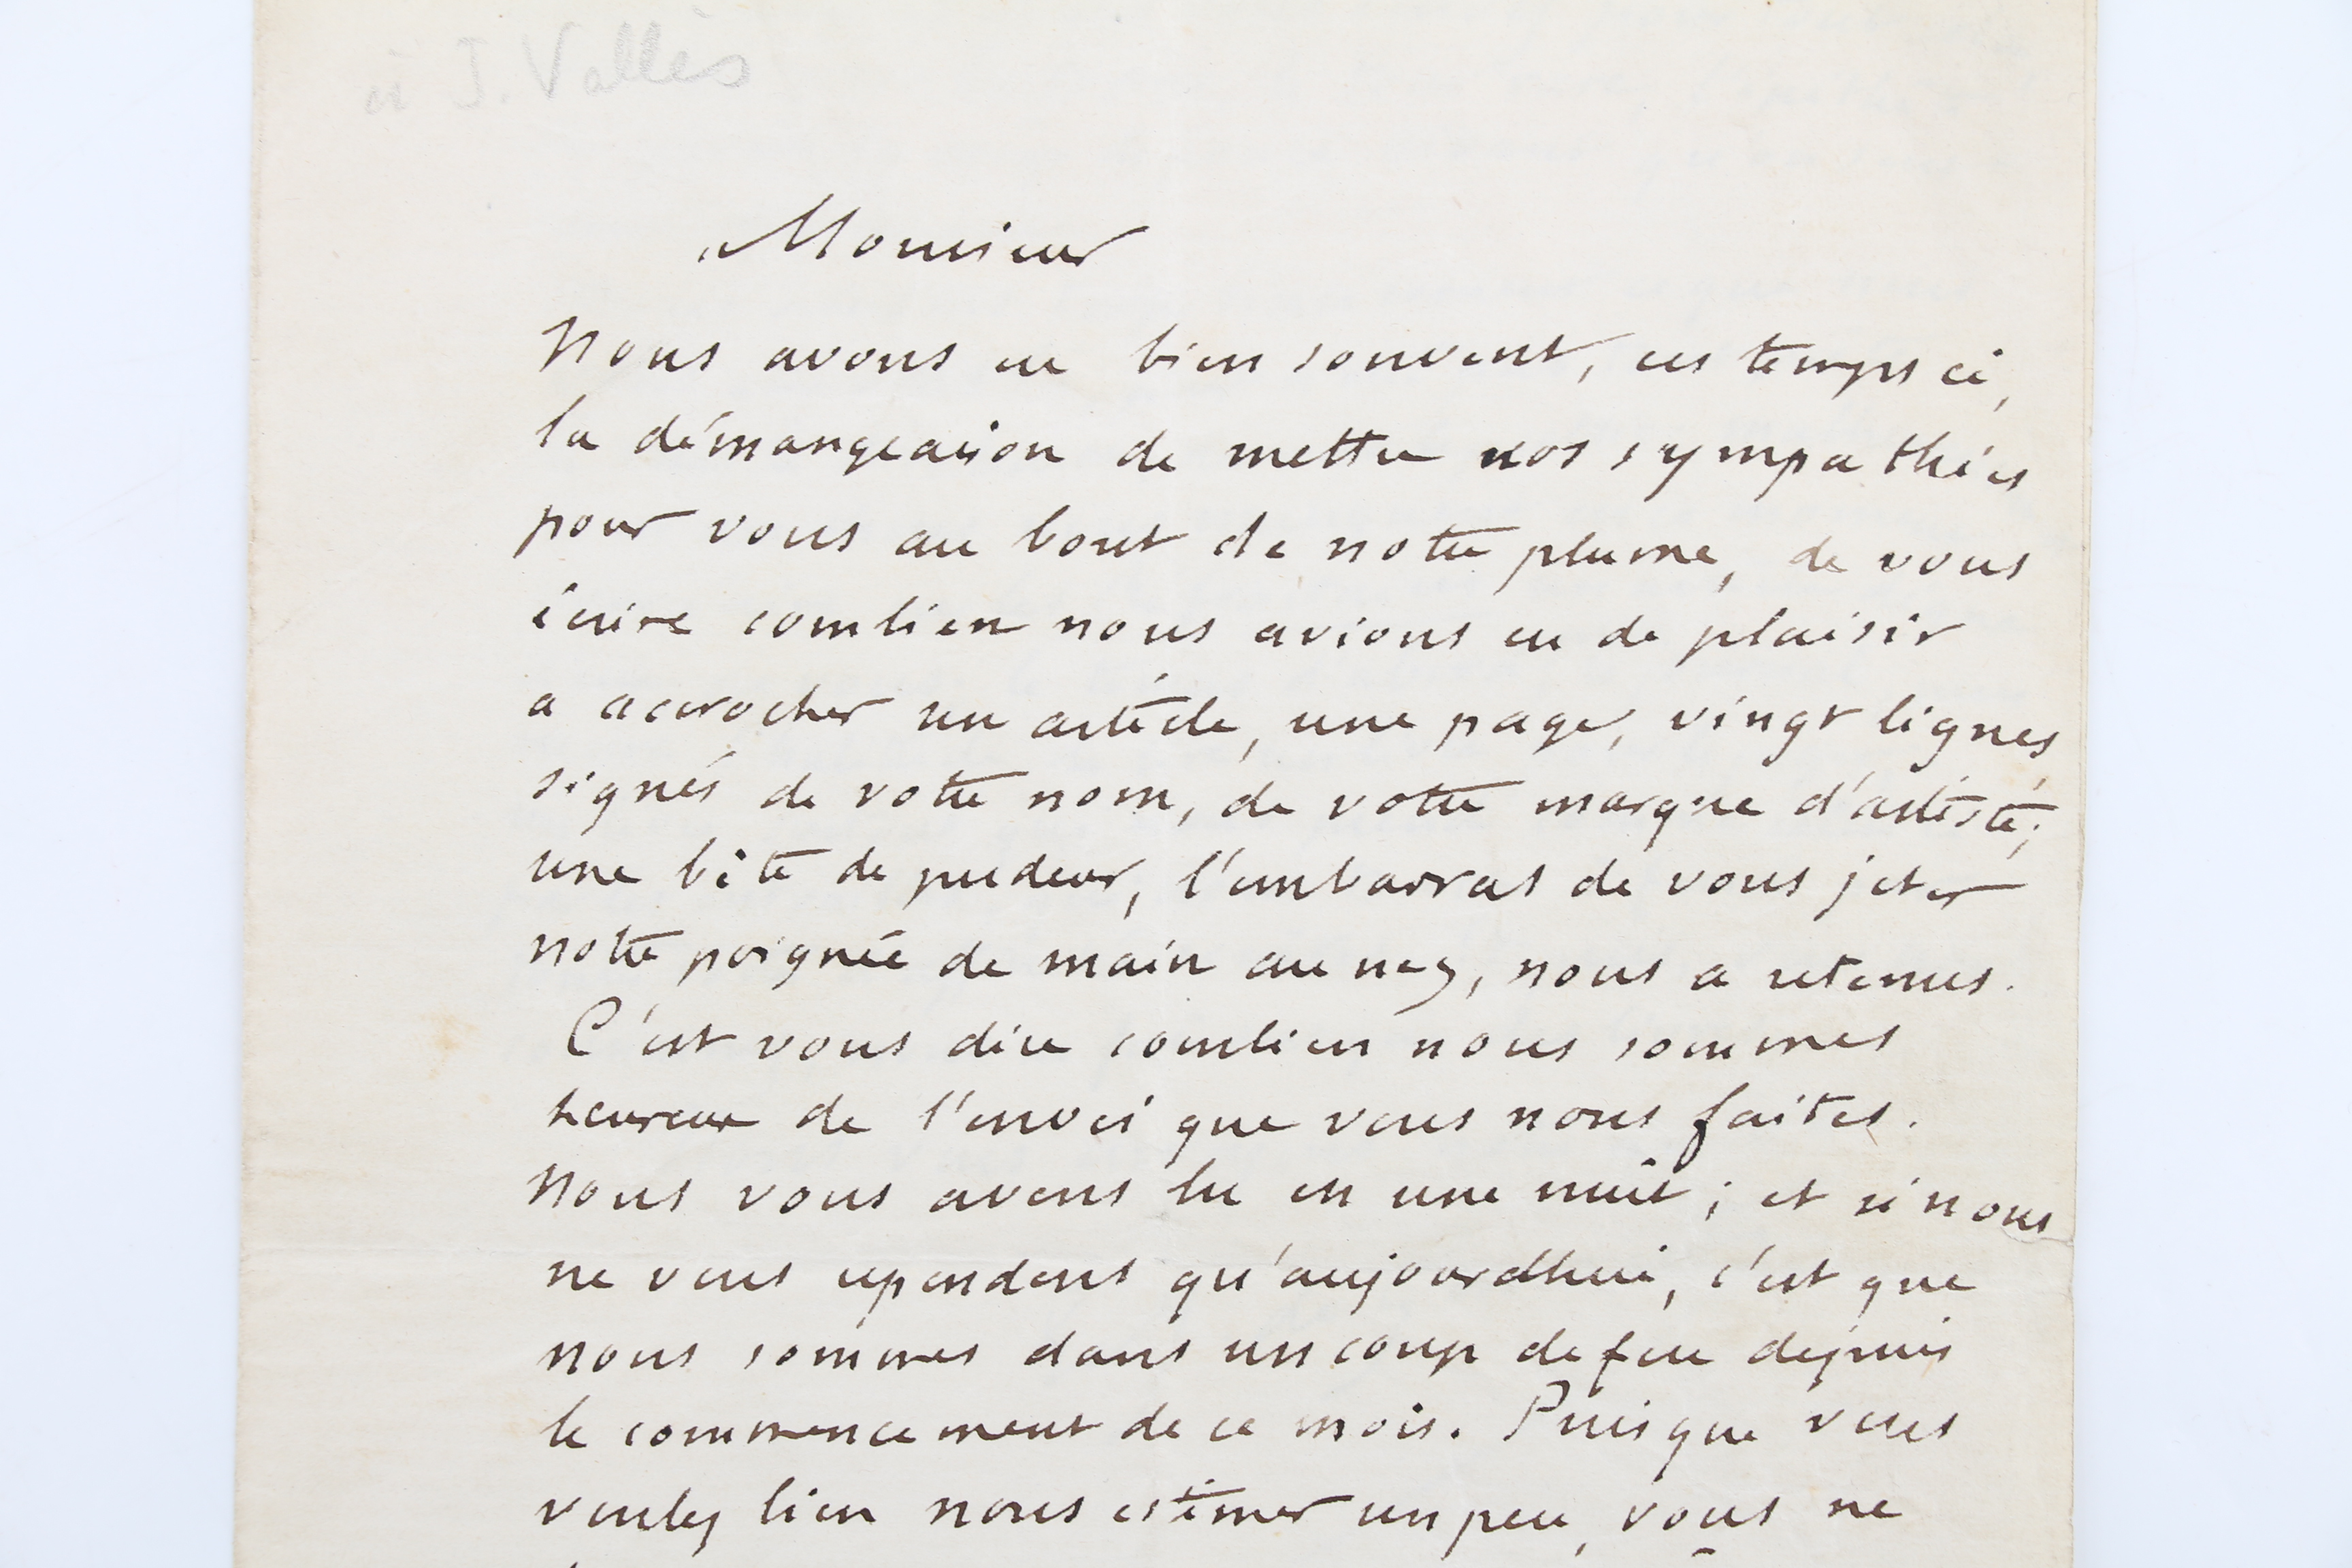 à J. Vallès
Monsieur
Nous avons eu bien souvent, ces temps ci,
la démangeaison de mettre nos sympathies
pour vous au bout de notre plume, de vous
écrire combien nous avions eu de plaisir
a accrocher un article, une page, vingt lignes
signés de votre nom, de votre marque d'artiste;
une bête de pudeur, l'embarras de vous jeter
notre poignée de main au nez, nous a retenus.
C'est vous dire combien nous sommes
heureux de l'envoi que vous nous faites.
Nous vous avons lu en une nuit ; et si nous
ne vous repondons qu'aujourdhui, c'est que
nous sommes dans un coup de feu depuis
le commencement de ce mois. Puisque vous
voulez bien nous estimer un peu, vous ne